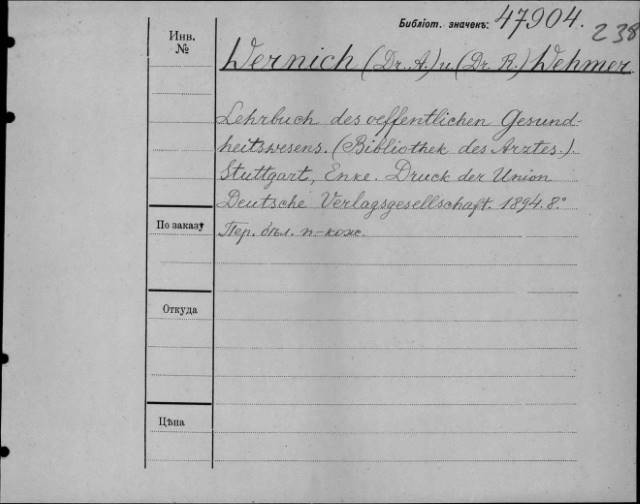 Библіот. значекъ: 47904.
238
Инв.
№
Wernich (Dr. A.) u (Dr. R.) Wehmer.
Lehrbuch des oeffentlichen Gesund-
heitswesens. (Bibliothek des Arztes.).
Stuttgart, Enke. Druck der Union
Deutsche Verlagsgesellschaft. 1894. 8.°
По заказу
Пер. бѣл. п.-кож.
Откуда
Цѣна